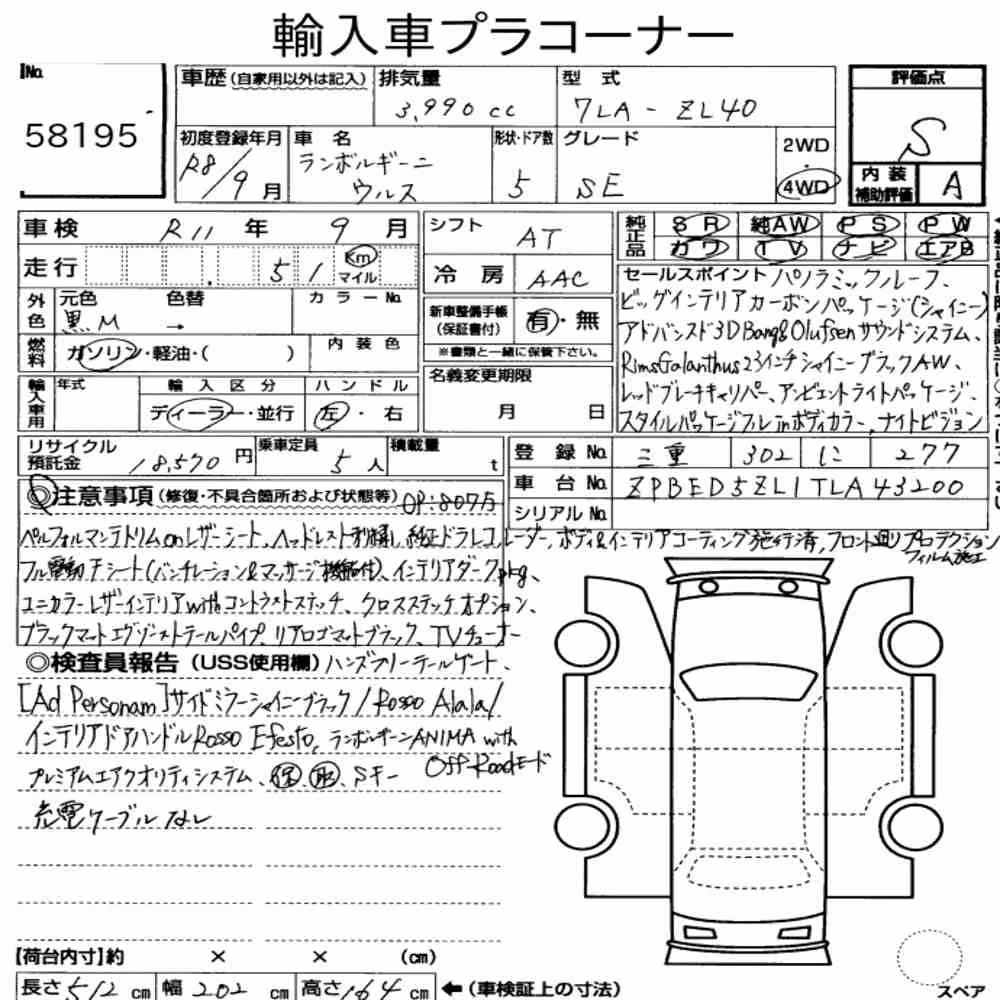 輸入車プラコーナー
No.
58195
車歴(自家用以外は記入)
排気量
3,990 cc
型 式
7LA - ZL40
評価点
S
初度登録年月
R8/9月
車 名
ランボルギーニ
ウルス
形状・ドア数
5
グレード
SE
2WD
4WD
内 装
補助評価
A
車検 R11 年 9 月
走行 51 Km
マイル
外色
元色
黒M
色替
→
カラーNo.
燃料
ガソリン・軽油・( )
内装色
輸入車用
年式
輸入区分
ディーラー・並行
ハンドル
左・右
シフト
AT
冷 房
AAC
新車整備手帳
(保証書付)
有・無
※書類と一緒に保管下さい。
名義変更期限
月 日
純正品
SR 純AW PS PW
カワ TV ナビ エアB
セールスポイント パノラミックルーフ、
ビッグインテリアカーボンパッケージ(シャイニー)
アドバンスド3D Bang&Olufsenサウンドシステム、
RimsGalanthus23インチシャイニーブラックAW、
レッドブレーキキャリパー、アンビエントライトパッケージ、
スタイルパッケージフルinボディカラー、ナイトビジョン
リサイクル
預託金
18,570 円
乗車定員
5 人
積載量
t
登 録 No. 三重 302 に 277
車 台 No. ZPBED5ZL1TLA43200
シリアルNo.
◎注意事項(修復・不具合箇所および状態等) OP:807万
ペルフォルマンテトリムonレザーシート、ヘッドレスト刺繍、純正ドラレコ、レーダー、ボディ&インテリアコーティング施行済、フロント廻りプロテクション
フィルム施工
フル電動Fシート(バンチレーション&マッサージ機能付)、インテリアダークpkg、
ユニカラーレザーインテリアwithコントラストステッチ、クロスステッチオプション、
ブラックマットエグゾーストテールパイプ、リアロゴマットブラック、TVチューナー
◎検査員報告(USS使用欄) ハンズフリーテールゲート、
[Ad Personam]サイドミラーシャイニーブラック/Rosso Alala/
インテリアドアハンドルRosso Efesto、ランボルギーニANIMA with
Off-Roadモード
プレミアムエアクオリティシステム、保 取 Sキー
充電ケーブルなし
【荷台内寸】約 × × (cm)
長さ512 cm 幅 202 cm 高さ164 cm ←(車検証上の寸法)
スペア